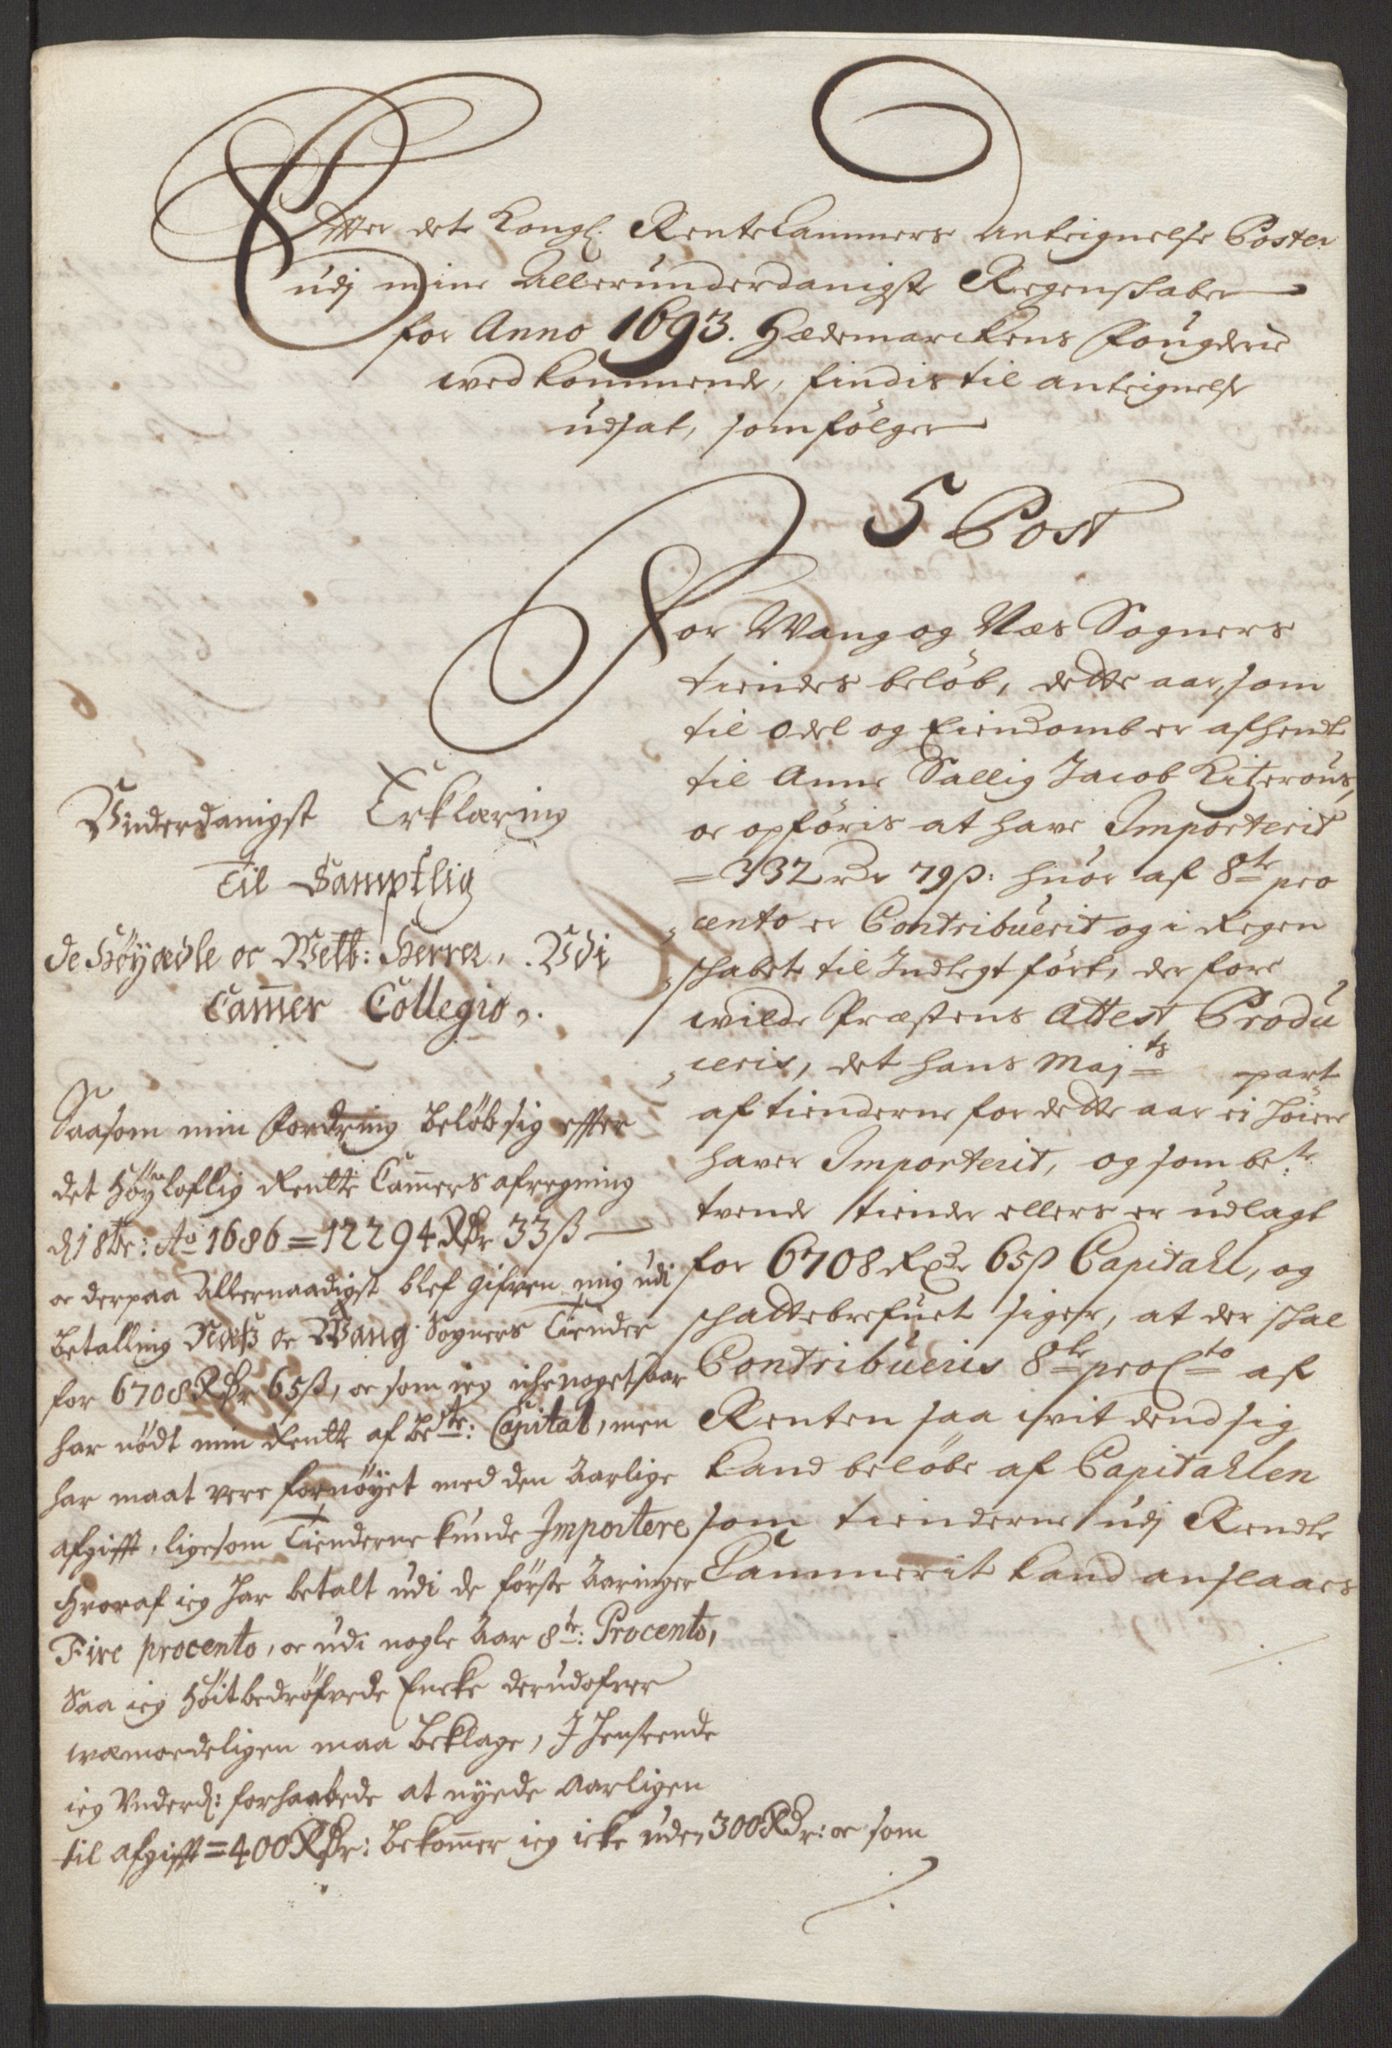 Efter det Kongl. RenteCammers Anteignelse Poster
udj mine Allerunderdanigste Regenschaber
for Anno 1693. Hædemarckens Fougderie
wedkommende, findis til anteignelse
udsat, som følger
5 Post
For Wang og Næs Sogners
tiendes beløb, dette aar, som
til odel og Eiendomb er afhendt
til Anne Sallig Jacob Luterous,
oc opføris at have Importerit
=332 Rdr 79ß: huor af 8te pro
cento er Contribuerit og i Regen
schabet til Indtegtført, der fore
wilde Præstens Attest Produ
ceris, det hans Majts part
af tienderne for dette aar ei høiere
haver Importerit, og som bete
tvende tiender ellers er udlagt
for 6708 Rdr 65ß Capitahl, og
schattebrefuet siger, at der schal
Contribueris 8te pro Cto af
Renten saa wit dend sig
kand beløbe af Capitahlen
som tienderne udj Rendte
Cammerit kand anslaaes
Vnderdanigst Erklæring
Til Samptlig
de Höyædle oc Welb: Herrer, Vdi
Cammer Collegio.
Saasom min Fordring beløb sig effter
det Höyloflig Rentte Cammers afregning
d 18de: Ao 1686 = 12294 Rdr 33ß
oc derpaa Allernaadigst blef gifven mig udi
betalling Næß oc Wang Sogners Tiender
for 6708 Rdr 65ß, oc som ieg iche noget aar
har nødt min Rentte af bete: Capital, men
har maat vere fornöyet med den Aarlige
afgifft, ligesom Tienderne kunde Importere
Hvoraf ieg har betalt udi de første Aaringer
Fire procento, oc udi nogle Aar 8te: Procento,
Saa ieg Höitbedröfvede Encke derudofver
wemoedeligen maa beklage, J henseende
ieg Vnderd: forhaabede at nyede Aarligen
til afgifft = 400 Rdr: bekommer ieg icke uden 300 Rdr: oc som